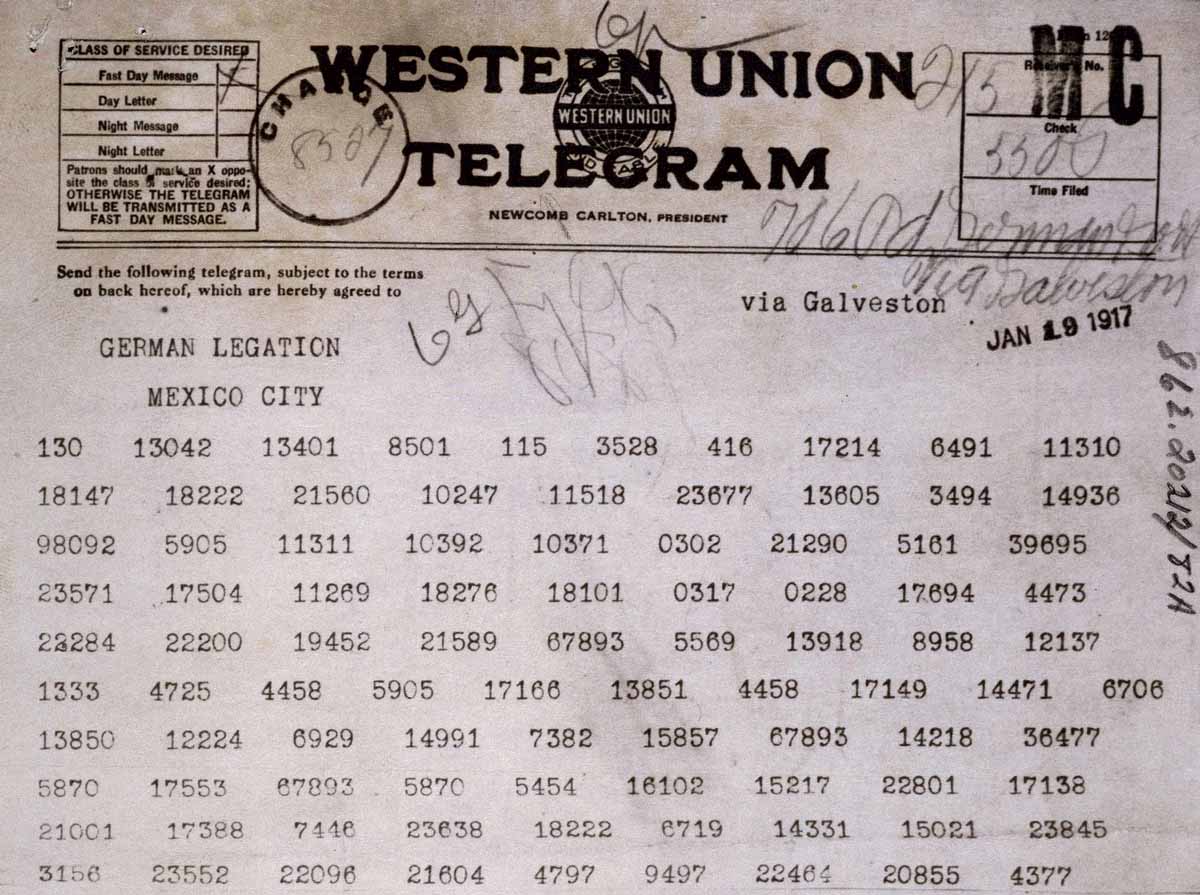 CLASS OF SERVICE DESIRED
Fast Day Message
Day Letter
Night Message
Night Letter
Patrons should mark an X oppo-
site the class of service desired;
OTHERWISE THE TELEGRAM
WILL BE TRANSMITTED AS A
FAST DAY MESSAGE.
CHARGE
8527
WESTERN UNION
WESTERN UNION
TELEGRAM
NEWCOMB CARLTON, PRESIDENT
215
Receiver's No.
MC
Check
5500
Time Filed
Send the following telegram, subject to the terms
on back hereof, which are hereby agreed to
via Galveston
via Galveston
JAN 19 1917
GERMAN LEGATION
MEXICO CITY
862.20212/82A
130 13042 13401 8501 115 3528 416 17214 6491 11310
18147 18222 21560 10247 11518 23677 13605 3494 14936
98092 5905 11311 10392 10371 0302 21290 5161 39695
23571 17504 11269 18276 18101 0317 0228 17694 4473
22284 22200 19452 21589 67893 5569 13918 8958 12137
1333 4725 4458 5905 17166 13851 4458 17149 14471 6706
13850 12224 6929 14991 7382 15857 67893 14218 36477
5870 17553 67893 5870 5454 16102 15217 22801 17138
21001 17388 7446 23638 18222 6719 14331 15021 23845
3156 23552 22096 21604 4797 9497 22464 20855 4377